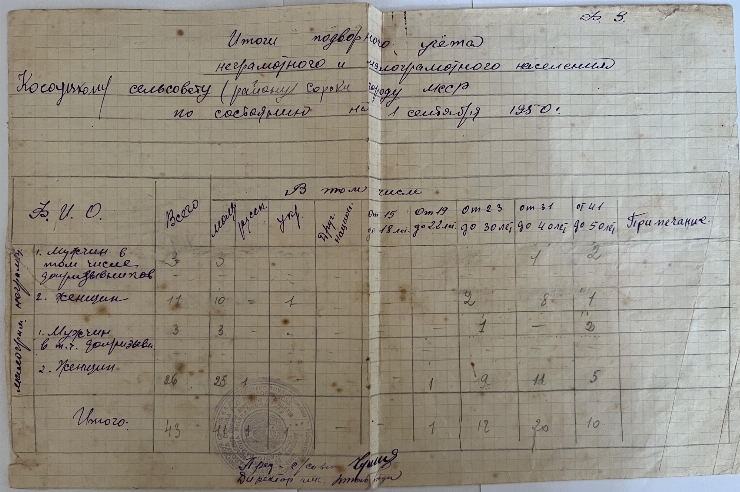 Б. 3.
Итоги подворного учёта
неграмотного и малограмотного населения
Косоуцкому сельсовету (району Сороки городу МССР
по состоянию на 1 сентября 1950 г.
Ф. И. О. Всего молд. русск. укр. Друг. национ. В том числе От 15 до 18 лет. От 19 до 22 лет. От 23 до 30 лет От 31 до 40 лет от 41 до 50 лет Примечание.
неграмот.
1. Мужчин в 3 3 - - - 1 2
том числе
допризывников - - - -
2. Женщин 11 10 - 1 2 8 1
малограм.
1. Мужчин 3 3 - - - 1 - 2
в т.ч. допризывн. - - - -
2. Женщин
26 25 1 - - - 1 9 11 5
Итого. 43 41 1 1 - - 1 12 20 10
Пред. с/сов
Директор